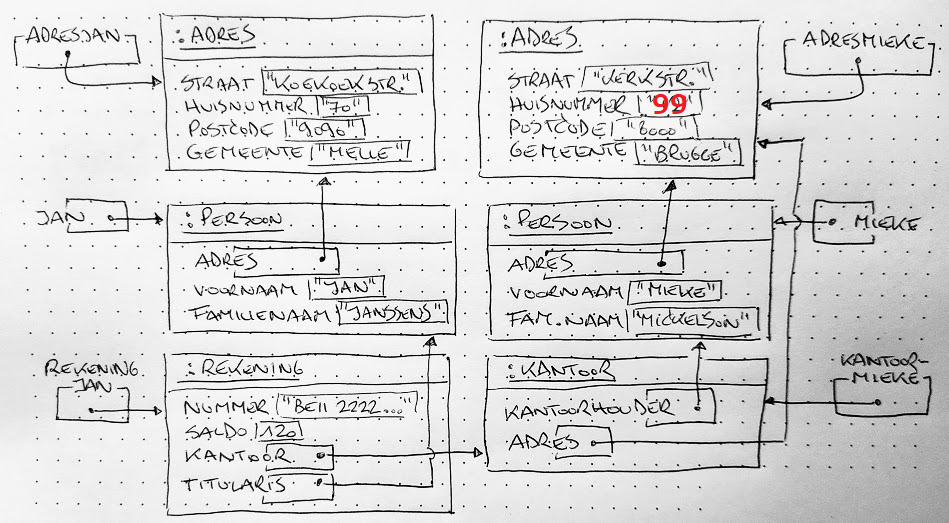 ADRESJAN
: ADRES
STRAAT "KOEKOEKSTR."
HUISNUMMER "70"
POSTCODE "9090"
GEMEENTE "MELLE"
: ADRES
STRAAT "KERKSTR."
HUISNUMMER "99"
POSTCODE "8000"
GEMEENTE "BRUGGE"
ADRESMIEKE
JAN
: PERSOON
ADRES
VOORNAAM "JAN"
FAMILIENAAM "JANSSENS"
: PERSOON
ADRES
VOORNAAM "MIEKE"
FAM.NAAM "MICKELSON"
MIEKE
REKENING
JAN
: REKENING
NUMMER "BE11 2222..."
SALDO 120
KANTOOR
TITULARIS
: KANTOOR
KANTOORHOUDER
ADRES
KANTOOR-
MIEKE